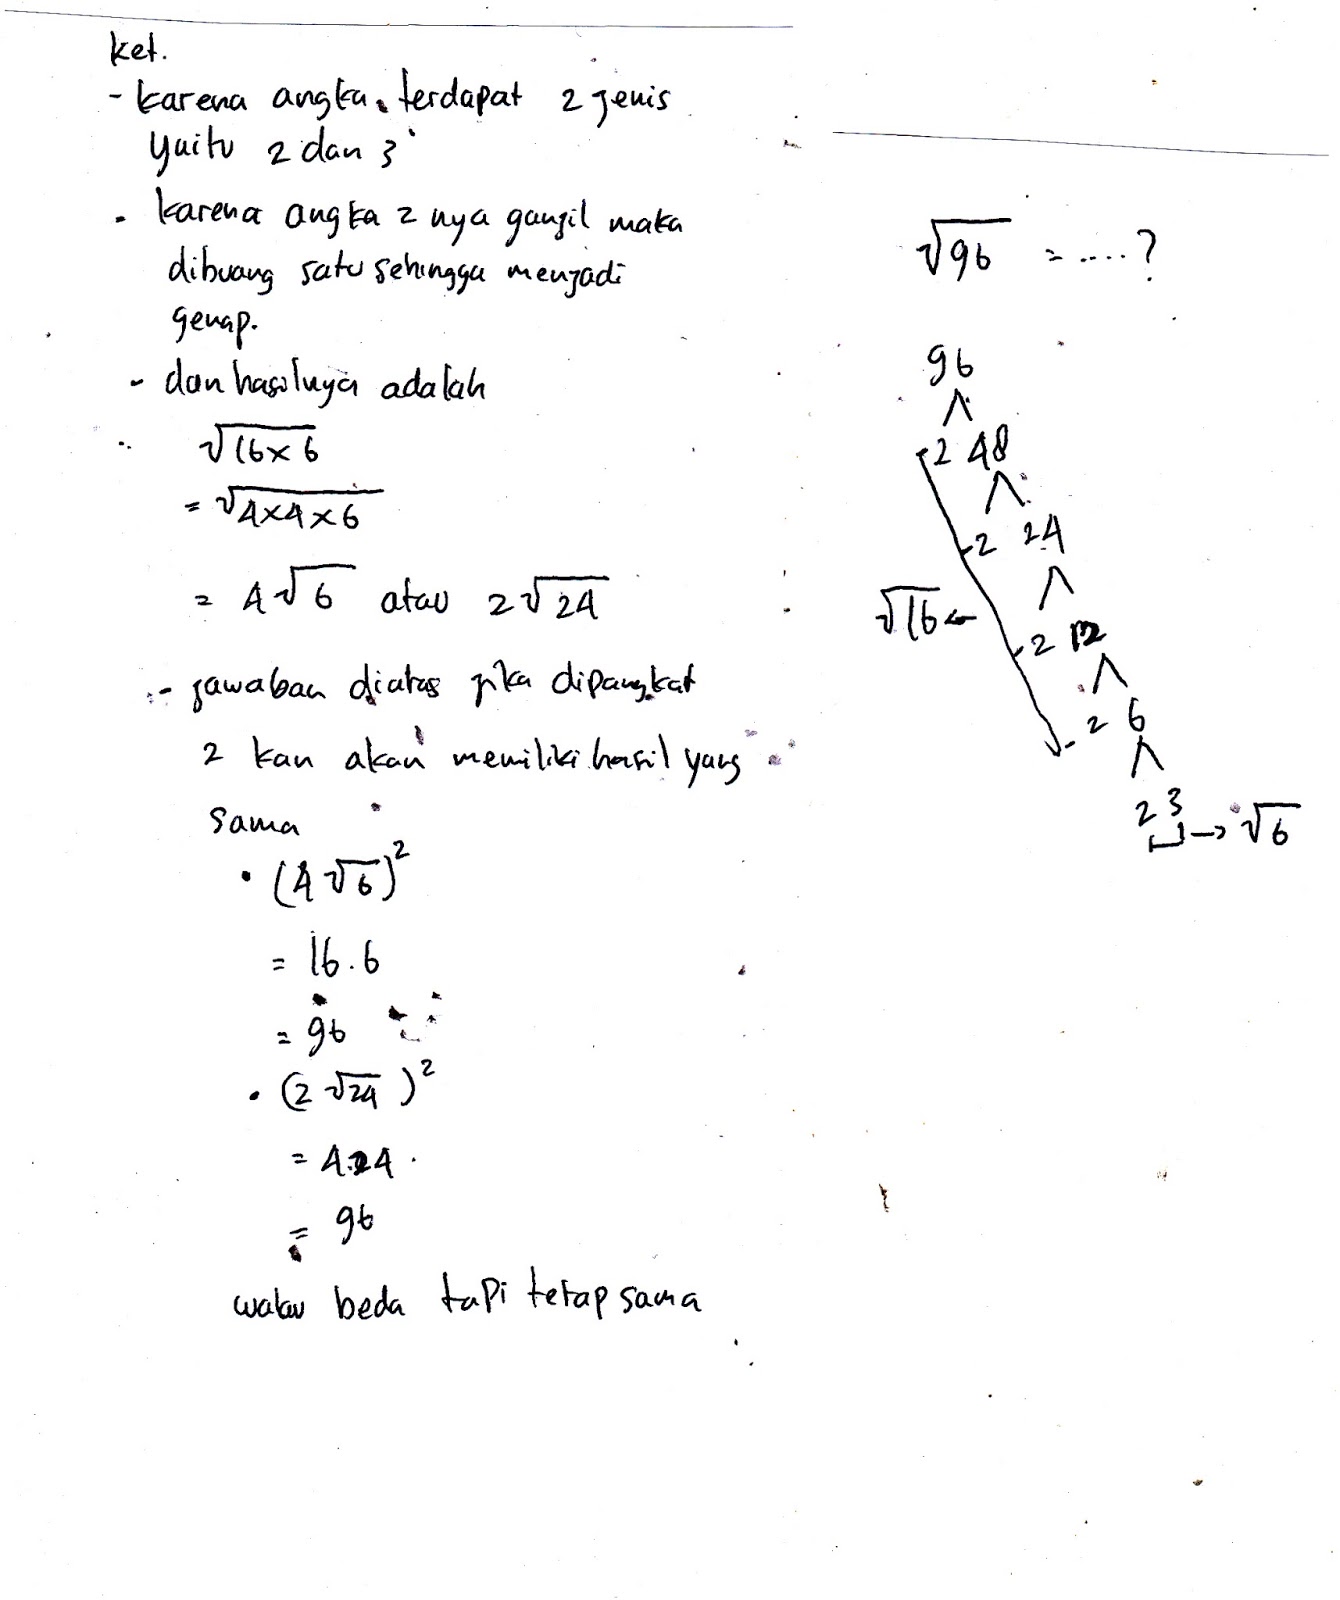 ket.
- karena angka terdapat 2 jenis
yaitu 2 dan 3
- karena angka 2 nya ganjil maka
dibuang satu sehingga menjadi
genap.
- dan hasilnya adalah
√16×6
= √4×4×6
= 4√6 atau 2√24
- jawaban diatas jika dipangkat
2 kan akan memiliki hasil yang
sama
• (4√6)²
= 16.6
= 96
• (2√24)²
= 4.24
= 96
walau beda tapi tetap sama
√96 = ....?
96
2 48
2 24
√16 ←
2 12
2 6
2 3 → √6